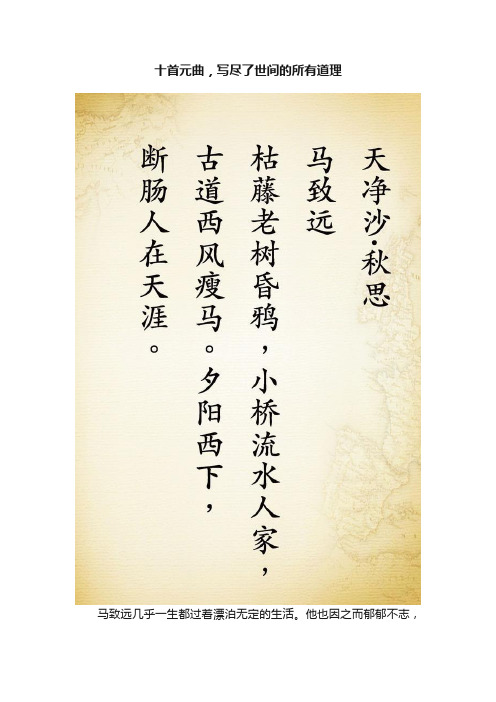 十首元曲，写尽了世间的所有道理
天净沙·秋思
马致远
枯藤老树昏鸦，小桥流水人家，
古道西风瘦马。夕阳西下，
断肠人在天涯。
马致远几乎一生都过着漂泊无定的生活。他也因之而郁郁不志，